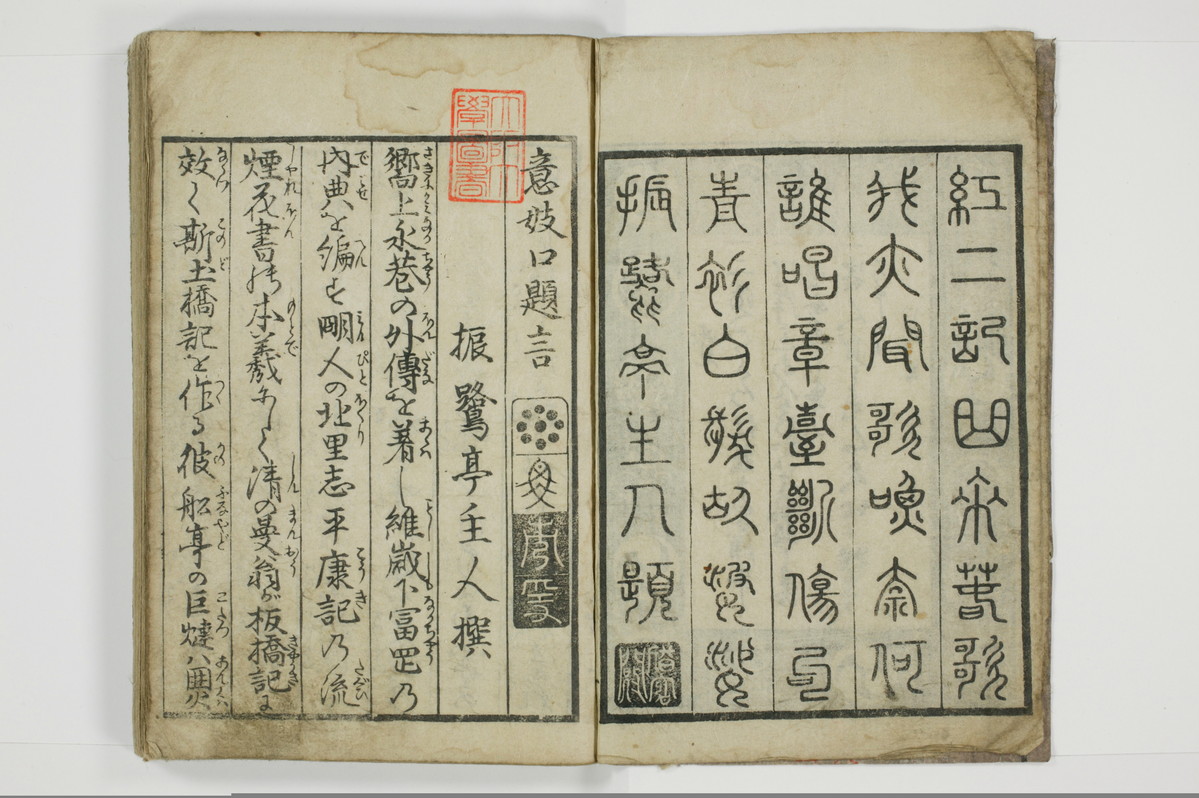 紅二記曲来葊歌
我亦聞歌喚奈何
誰唱章臺斷傷句
青衫白髮故婆娑
振鷺亭主人題
意妓口題言
振鷺亭主人撰
嚮上永巷の外傳を著し維歳下富罡乃
内典を編す明人の北里志平康記乃流
煙花書の本義にして清の曼翁が板橋記に
效く斯土橋記を作る彼船亭の巨燵ハ奥